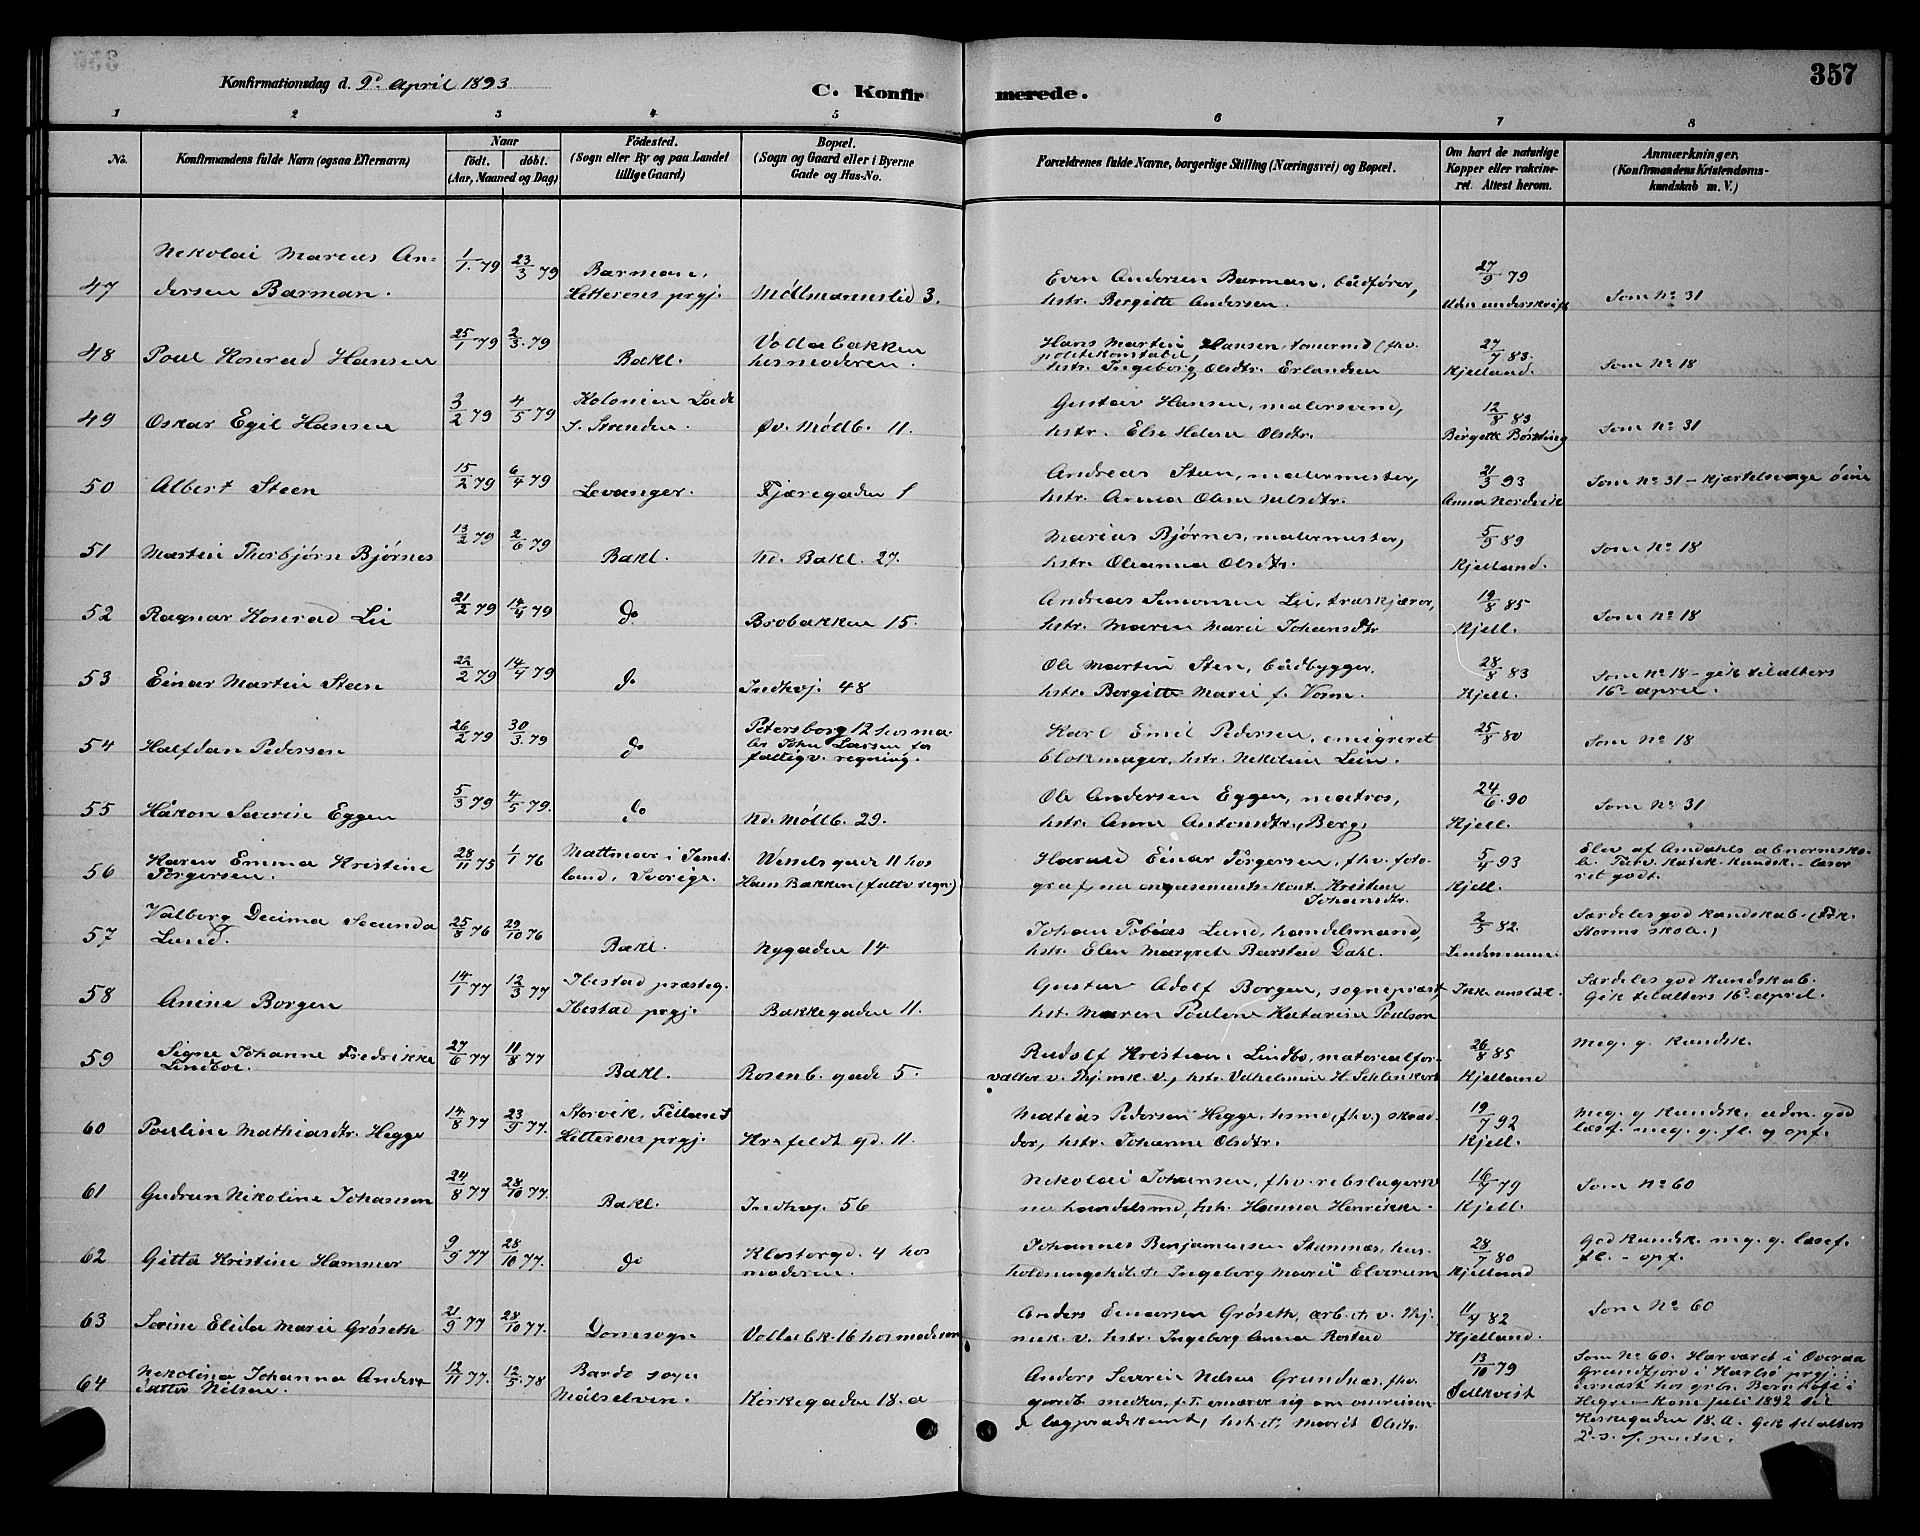 357
Konfirmationsdag d. 9de April 1893
C. Konfirmerede.
1 2 3 4 5 6 7 8
No. Konfirmandens fulde Navn (ogsaa Efternavn) Naar födt. döbt. (Aar, Maaned og Dag) Födested. (Sogn eller By og paa Landet tillige Gaard) Bopæl. (Sogn og Gaard eller i Byerne Gade og Hus-No. Forældrenes fulde Navne, borgerlige Stilling (Næringsvei) og Bopæl. Om havt de naturlige Kopper eller vakcineret. Attest herom. Anmærkninger. (Konfirmandens Kristendomskundskab m. V.)
47 Nikolai Marius Andersen Barman. 1/1 79 23/3 79 Barman, Hitterens prgj. Møllmannslid 3. Even Andersen Barman, bådfører, hstr. Bergitte Andersen. 27/9 79 Uden underskrift Som No 31
48 Poul Konrad Hansen 25/1 79 2/3 79 Bakl. Vollabakken hos moderen. Hans Martin Hansen, (fhv. politikonstabel, hstr. Ingeborg Olsdtr. Erlandsen 27/7 83. Kjelland. Som No 18
49 Oskar Egil Hansen 3/2 79 4/5 79 Kolonien Lade S. Strinden. Øv. Møllb. 11. Gustav Hansen, malersvend, hstr. Else Helena Olsdtr. 12/8 83 Bergitte Som No 31
50 Albert Steen 15/2 79 6/4 79 Levanger. Fjæregaden 1 Andreas Steen, malermester, hstr. Anna Oline Nilsdtr. 21/3 93 Anna Nordvik Som No 31 - Kjertelsvage öine
51 Martin Thorbjørn Bjørnes 13/2 79 2/6 79 Bakl. Nd. Bakl. 27. Marius Bjørnes, malermester, hstr. Oleanna Olsdtr. 5/9 89 Kjelland. Som No 18
52 Ragnar Konrad Lie 21/2 79 14/4 79 do Brobakken 15. Andreas Simonsen Lie, træskjærer, hstr. Maren Marie Johansdtr 19/8 85 Kjell. Som No 18
53 Einar Martin Steen 22/2 79 14/4 79 do Indhvj. 48 Ole Martin Sten, bådbygger, hstr. Bergitte Marie f. Vorm. 28/8 83 Kjell. Som No 18 - gik tilalters 16de april.
54 Halfdan Pedersen 26/2 79 30/3 79 do Petersborg 12 hos maler John Larsen for fattigv. regning. Karl Emil Pedersen, emigreret blokmager, hstr. Nikoline Lein. 25/8 80 Som No 18
55 Håkon Severin Eggen 5/3 79 4/5 79. do Nd. Møllb. 29. Ole Andersen Eggen, matros, hstr. Anne Antonsdtr. Berg. 24/6 90 Kjell. Som No 31
56 Karen Emma Kristine Torgersen. 28/11 75 1/1 76 Mattmar i Jemtland, Sverige. Wesselsgade 11 hos Hans Bakken (fattv regn) Harald Einar Torgersen, fhv. fotograf, nu Kristine Johansdtr. 5/4 93 Kjell. Elev af Amdahls abnormskole. Tilv. Katek. Kundsk. - læser ret godt.
57 Valborg Decima Secunda Lund. 25/8 76 29/10 76 Bakl. Nygaden 14 Johan Tobias Lund, handelsmand, hstr. Elen Margrete Barstad Dahl. 2/5 82. Lindemann. Særdeles god Kundskab. (Frk. Storms skole.)
58 Anine Borgen 14/1 77 12/3 77 Ibestad præsteg. Ibestad prgj. Bakkegaden 11. Gustav Adolf Borgen, sognepræst, hst. Maren Pouline Katarine Poulson Ikke anslåt. Særdeles god Kundskab. Gik tilalters 16de april.
59 Signe Johanne Fredrikke Lindboe. 27/6 77 11/8 77 Bakl. Rosenb. gade 5. Rudolf Kristian Lindbo, materialforvalter v. Thj. mk. V., hstr. Vilhelmine H. Schlinkert 26/8 85 Kjelland Meg. g. Kundsk.
60 Pouline Mathiasdtr. Hegge 14/8 77 23/9 77. Storvik, Fillan S Hitterens prgj. Kr.feldt gd. 11. Matias Pedersen Hegge, hsmd, (fhv.) skrædder, hstr. Johanne Olsdtr. 19/7 92 Kjell. Meg. g Kundsk. udm. god læsf. meg. g. fl. og opf.
61 Gudrun Nikoline Johansen 24/8 77 28/10 77. Bakl. Indhvj. 56 Nikolai Johansen, fhv. rebslagersv nu handelsmd, hstr. Hanna Henrikke. 16/7 79 Kjell. Som No 60
62 Gitta Kristine Hammer 9/9 77 28/10 77. do Klostergd. 4 hos moderen. Johannes Benjaminsen Stamnæs, Ingeborg Marie Elverum 28/7 80 Kjelland God Kundsk. meg. g. læsef. fl. - opf.
63 Serine Elida Marie Grøseth 21/9 77 28/10 77. Domsogn Vollabk. 16 hos moderen Anders Einarsen Grøseth, arb. v. Thj. mek. v. hstr. Ingeborg Anna Rostad 11/4 82 Kjelland. Som No 60
64 Nikolina Johanna Andersdatter Nilsen. 12/11 77. 12/5 78 Bardo sogn Målselven. Kirkegaden 18. a Anders Severin Nilsen Grundnæs, fhv. gaardb. nærer sig om omreisende lægprædikant, hst. Marit Olsdtr. 13/10 79 Som No 60. Har været i Grundfjord i prgj. dernæst hos Hegre - kom juli 1892 til Kirkegaden 18. A. Gik tilalters 2. s. f.